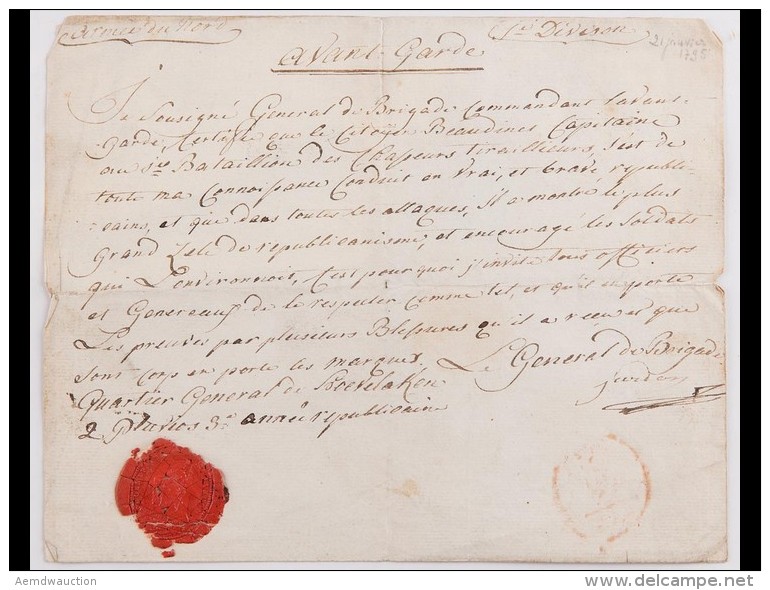 Armée du Nord
1re Divison
21 janvier
1795
avant-Garde
Je Sousigné General de Brigade Commandant lavant-
garde, Certifie que le Citoyen Beaudinet Capitaine
au Bataillion des Chasseurs tirailleurs, s'est de
toute ma Connoissance Conduit en vrai, et brave republi-
cains, et que dans toutes les attaques, Il a montré le plus
Grand Zele de republicanisme, et encouragé les Soldats
qui L'environnoit, C'est pourquoi j'invite tous officiers
et Genereaux de le respecter Comme tel, et qu'il en porte
Les preuves par plusieurs Blessures qu'il a réçu et que
Sont Corp en porte les marques
Le General de Brigade
Quartier General de Hoevelaken
2 Pluvios 3e année republicaine
Aemdwauction
delcampe.net